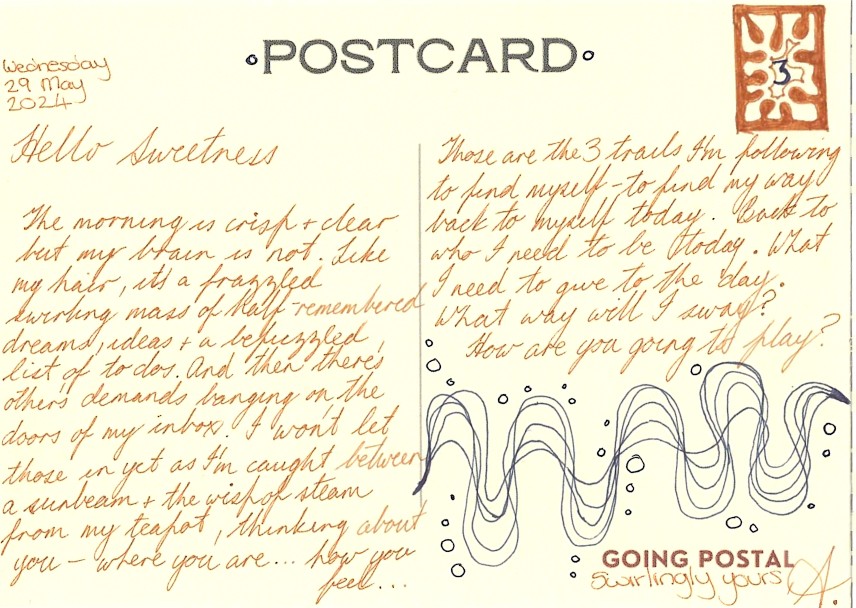 POSTCARD
Wednesday
29 May
2024
3
Hello Sweetness
The morning is crisp + clear
but my brain is not. Like
my hair, it's a frazzled
swirling mass of half-remembered
dreams, ideas + a befuzzled
list of to dos. And then there's
others demands banging on the
doors of my inbox. I won't let
those in yet as I'm caught between
a sunbeam + the wisp of steam
from my teapot, thinking about
you – where you are... how you
feel...
Those are the 3 trails I'm following
to find myself – to find my way
back to myself today. Back to
who I need to be today. What
I need to give to the day.
What way will I sway?
How are you going to play?
GOING POSTAL
Swirlingly yours
A.